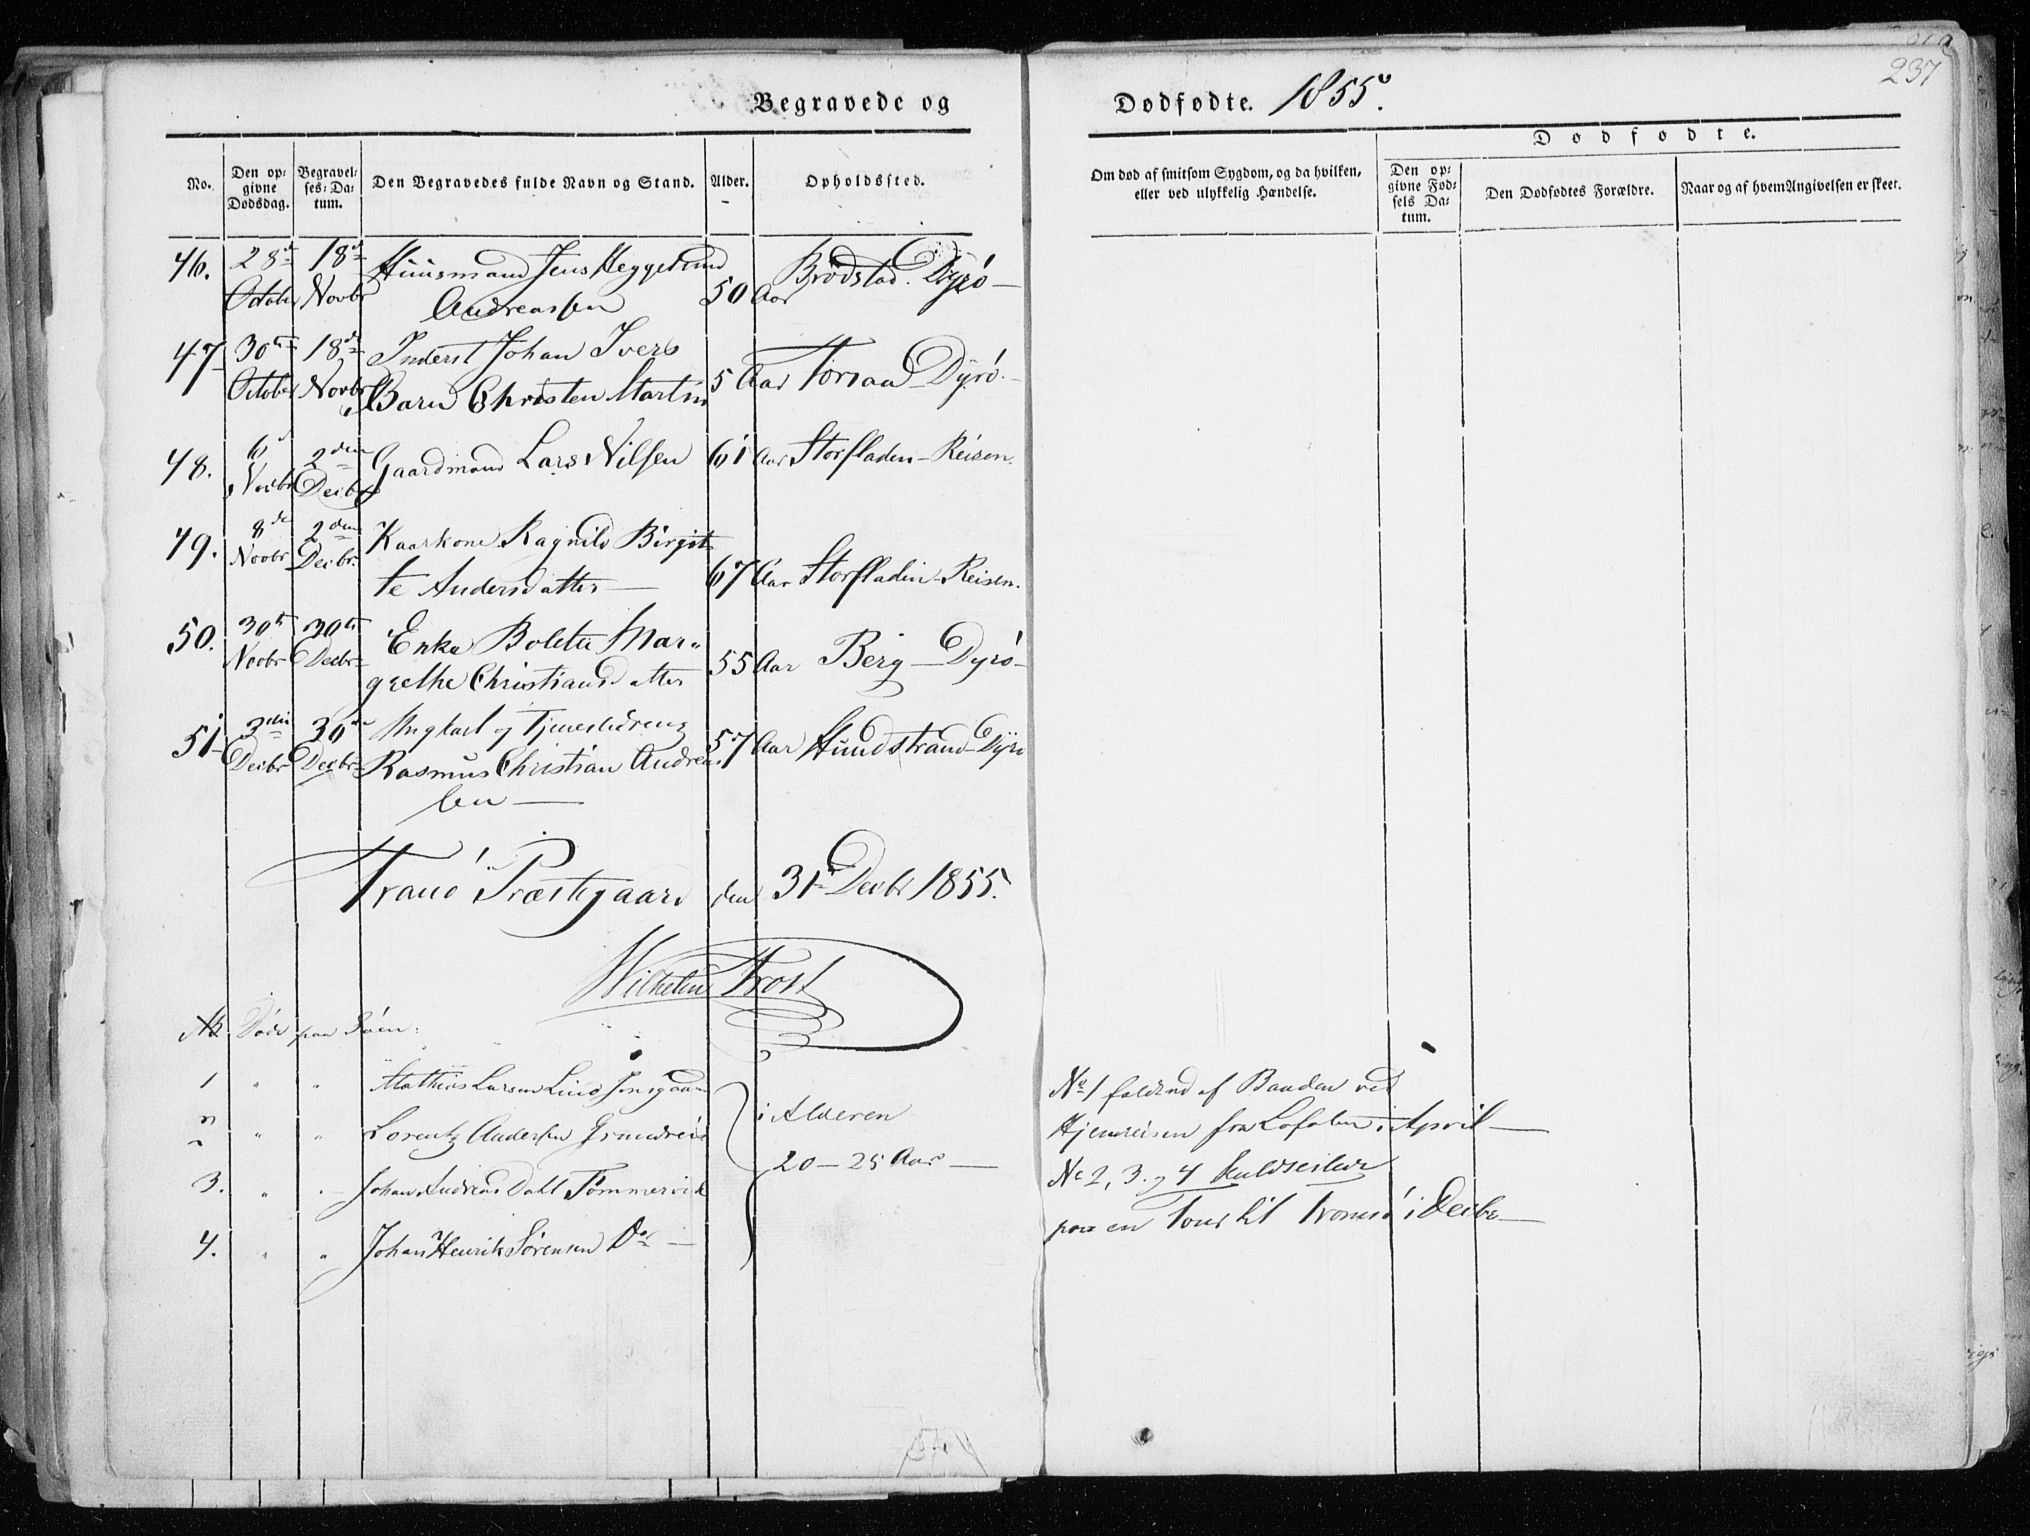 237
Begravede og Dødfødte. 1855.
Dødfødte.
No.
Den op-
givne
Dødsdag.
Begravel-
ses-Da-
tum.
Den Begravedes fulde Navn og Stand.
Alder.
Opholdssted.
Om død af smitsom Sygdom, og da hvilken,
eller ved ulykkelig Hændelse.
Den op-
givne Fød-
sels Da-
tum.
Den Dødfødtes Forældre.
Naar og af hvem Angivelsen er skeet.
46. 28de 18de Huusmand Jens Heggelund Brødstad. Dyrø
October Novbr Andreassen 50 Aar
47 30te 18de Inderst Johan Ivers
October Novbr Barn Christen Martin 5 Aar Torsaa Dyrø.
48. 6te 2den Gaardmand Lars Nilsen 61 Aar Storfladen - Reisen.
Novbr Decbr
49. 8de 2den Kaarkone Ragnild Birgit-
Novbr Decbr. te Andersdatter 67 Aar Storfladen - Reisen.
50. 30te 30te Enke Bolette Mar-
Novbr Decbr grethe Christiansdatter 55 Aar Berg - Dyrø
51 3die 30te Ungkarl og Tjenestedreng
Decbr Decbr Rasmus Christian Andreas- 57 Aar Hundstrand Dyrø
sen
Tranø Præstegaard den 31te Decbr 1855.
Wilhelm Frost
Nb Døde paa Søen:
1 " " Mathias Larsen Lind
2 " " Lorentz Andersen
3. " " Johan Andreas Dahl Tømmervik
4. " " Johan Henrik Sørensen Do
i Alderen
20 - 25 Aar
No 1 falden af Baaden ved
Hjemreisen fra Lofoten i April
No 2, 3 og 4 kuldseilede
paa en Tour til Tromsø i Decbr